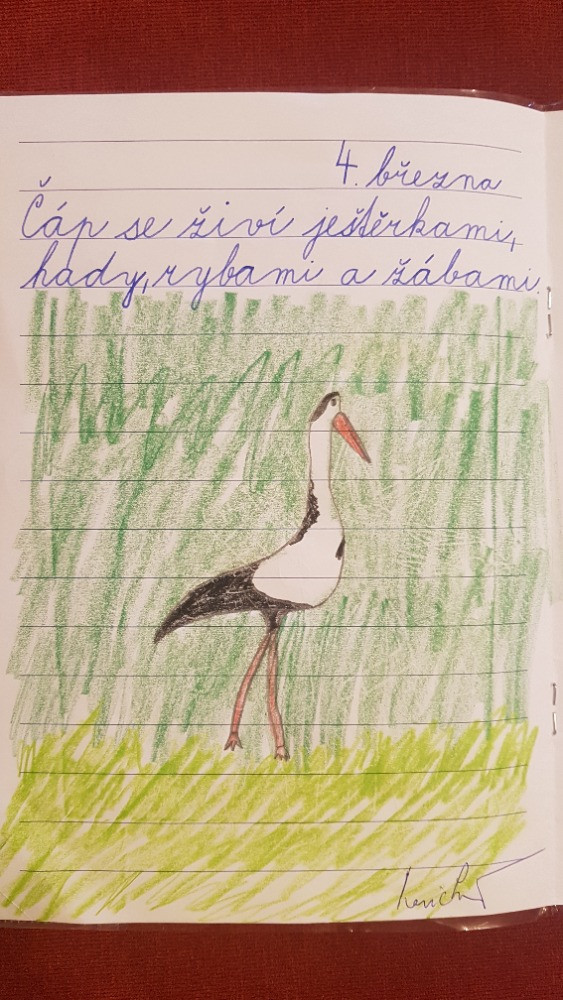 4. března
Čáp se živí ještěrkami,
hady, rybami a žábami.